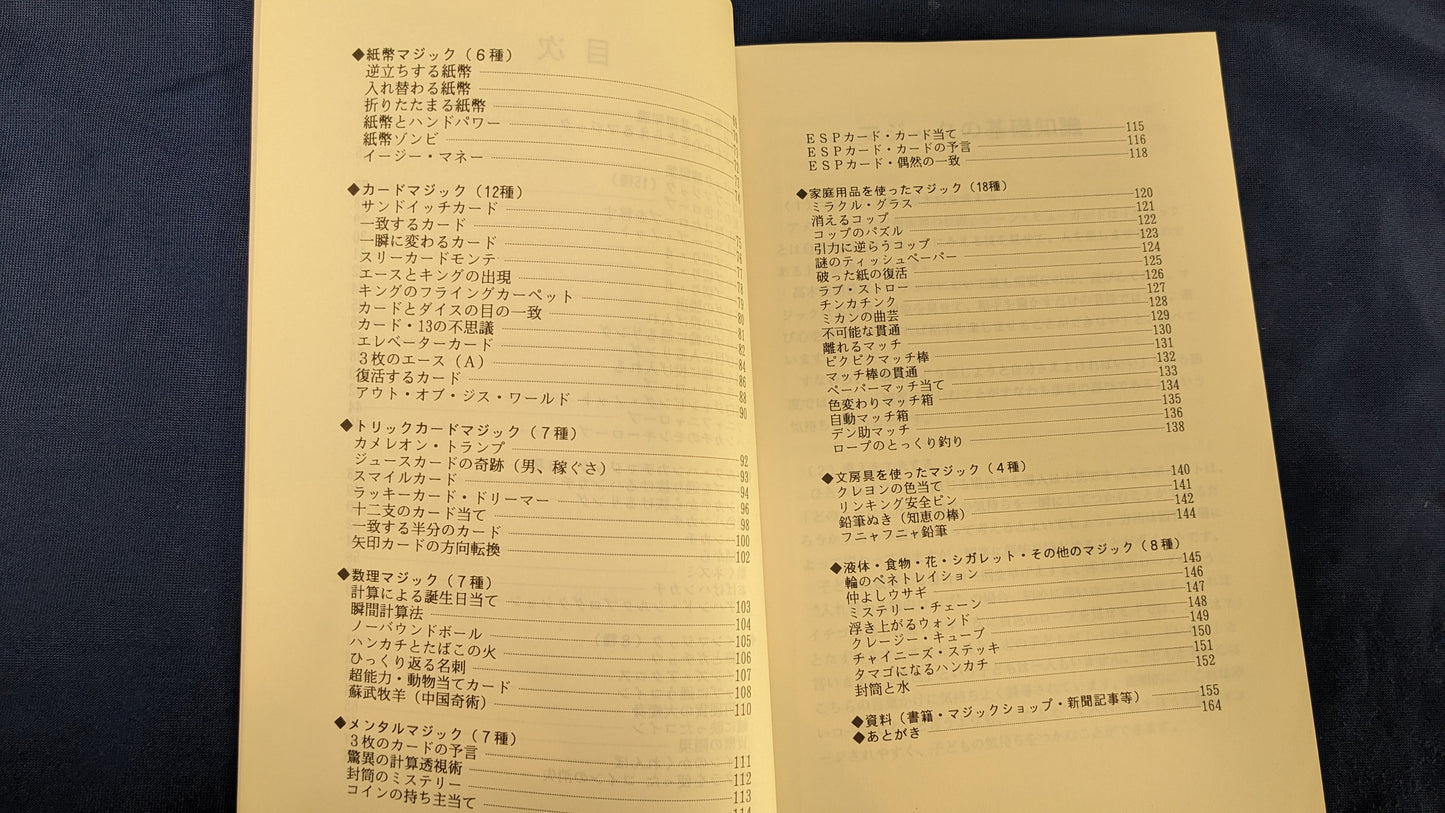 ◆紙幣マジック（６種）
逆立ちする紙幣
入れ替わる紙幣
折りたたまる紙幣
紙幣とハンドパワー 72
紙幣ゾンビ 73
イージー・マネー 74
◆カードマジック（12種）
サンドイッチカード 75
一致するカード 76
一瞬に変わるカード 77
スリーカードモンテ 78
エースとキングの出現 79
キングのフライングカーペット 80
カードとダイスの目の一致 81
カード・13の不思議 82
エレベーターカード 84
３枚のエース（Ａ） 86
復活するカード 88
アウト・オブ・ジス・ワールド 90
◆トリックカードマジック（７種）
カメレオン・トランプ 92
ジュースカードの奇跡（男、稼ぐさ） 93
スマイルカード 94
ラッキーカード・ドリーマー 96
十二支のカード当て 98
一致する半分のカード 100
矢印カードの方向転換 102
◆数理マジック（７種）
計算による誕生日当て 103
瞬間計算法 104
ノーバウンドボール 105
ハンカチとたばこの火 106
ひっくり返る名刺 107
超能力・動物当てカード 108
蘇武牧羊（中国奇術） 110
◆メンタルマジック（７種）
３枚のカードの予言 111
驚異の計算透視術 112
封筒のミステリー 113
コインの持ち主当て 114
ＥＳＰカード・カード当て 115
ＥＳＰカード・カードの予言 116
ＥＳＰカード・偶然の一致 118
◆家庭用品を使ったマジック（18種）
ミラクル・グラス 120
消えるコップ 121
コップのパズル 122
引力に逆らうコップ 123
謎のティッシュペーパー 124
破った紙の復活 125
ラブ・ストロー 126
チンカチンク 127
ミカンの曲芸 128
不可能な貫通 129
離れるマッチ 130
ピクピクマッチ棒 131
マッチ棒の貫通 132
ペーパーマッチ当て 133
色変わりマッチ箱 134
自動マッチ箱 135
デン助マッチ 136
ロープのとっくり釣り 138
◆文房具を使ったマジック（４種）
クレヨンの色当て 140
リンキング安全ピン 141
鉛筆ぬき（知恵の棒） 142
フニャフニャ鉛筆 144
◆液体・食物・花・シガレット・その他のマジック（８種）
輪のペネトレイション 145
仲よしウサギ 146
ミステリー・チェーン 147
浮き上がるウォンド 148
クレージー・キューブ 149
チャイニーズ・ステッキ 150
タマゴになるハンカチ 151
封筒と水 152
◆資料（書籍・マジックショップ・新聞記事等） 155
◆あとがき 164